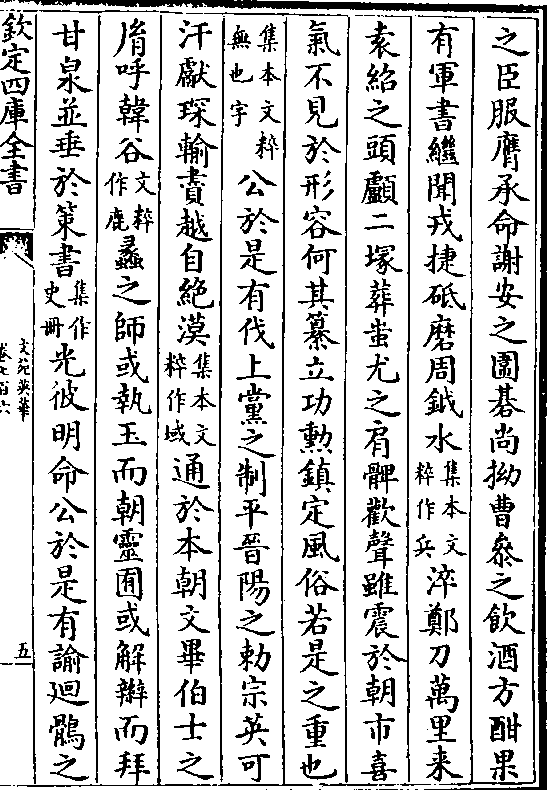 之臣服膺承命謝安之圍碁尚拗曹叅之飲酒方酣果
有軍書繼聞戎捷砥磨周鉞水集本文粹作兵淬鄭刀萬里来
袁紹之頭顱二塚葬蚩尤之肩髀歡聲雖震於朝市喜
氣不見於形容何其纂立功勲鎮定風俗若是之重也
集本文粹無也字公於是有伐上黨之制平晉陽之勅宗英可
汗獻琛輸賮越自絶漠集本文粹作域通於本朝文畢伯士之
胤呼韓谷文粹作鹿蠡之師或執玉而朝靈囿或解辮而拜
甘泉並垂於策書集作史冊光彼明命公於是有諭廻鶻之
欽定四庫全書
文苑英華
卷七百六
五